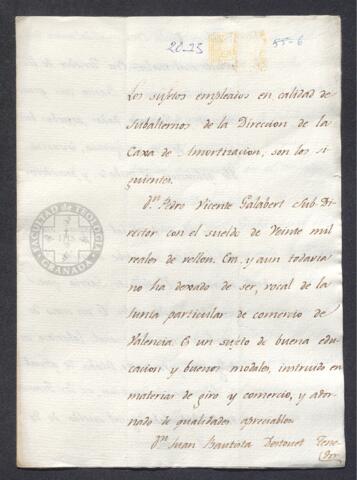 20-25
55-6
Los sujetos empleados en calidad de
Subalternos de la Direccion de la
Caxa de Amortizacion, son los si
guientes.
Dn. Pedro Vicente Galabert Sub-Di
rector con el sueldo de Veinte mil
reales de vellon. Era, y aun todavia
no ha dexado de ser, vocal de la
Junta particular de comercio de
Valencia. Es un sujeto de buena edu
cacion y buenos modales, instruido en
materias de giro y comercio, y ador
nado de qualidades apreciables.
Dn. Juan Bautista Tene
dor
FACULTAD de TEOLOGIA
GRANADA